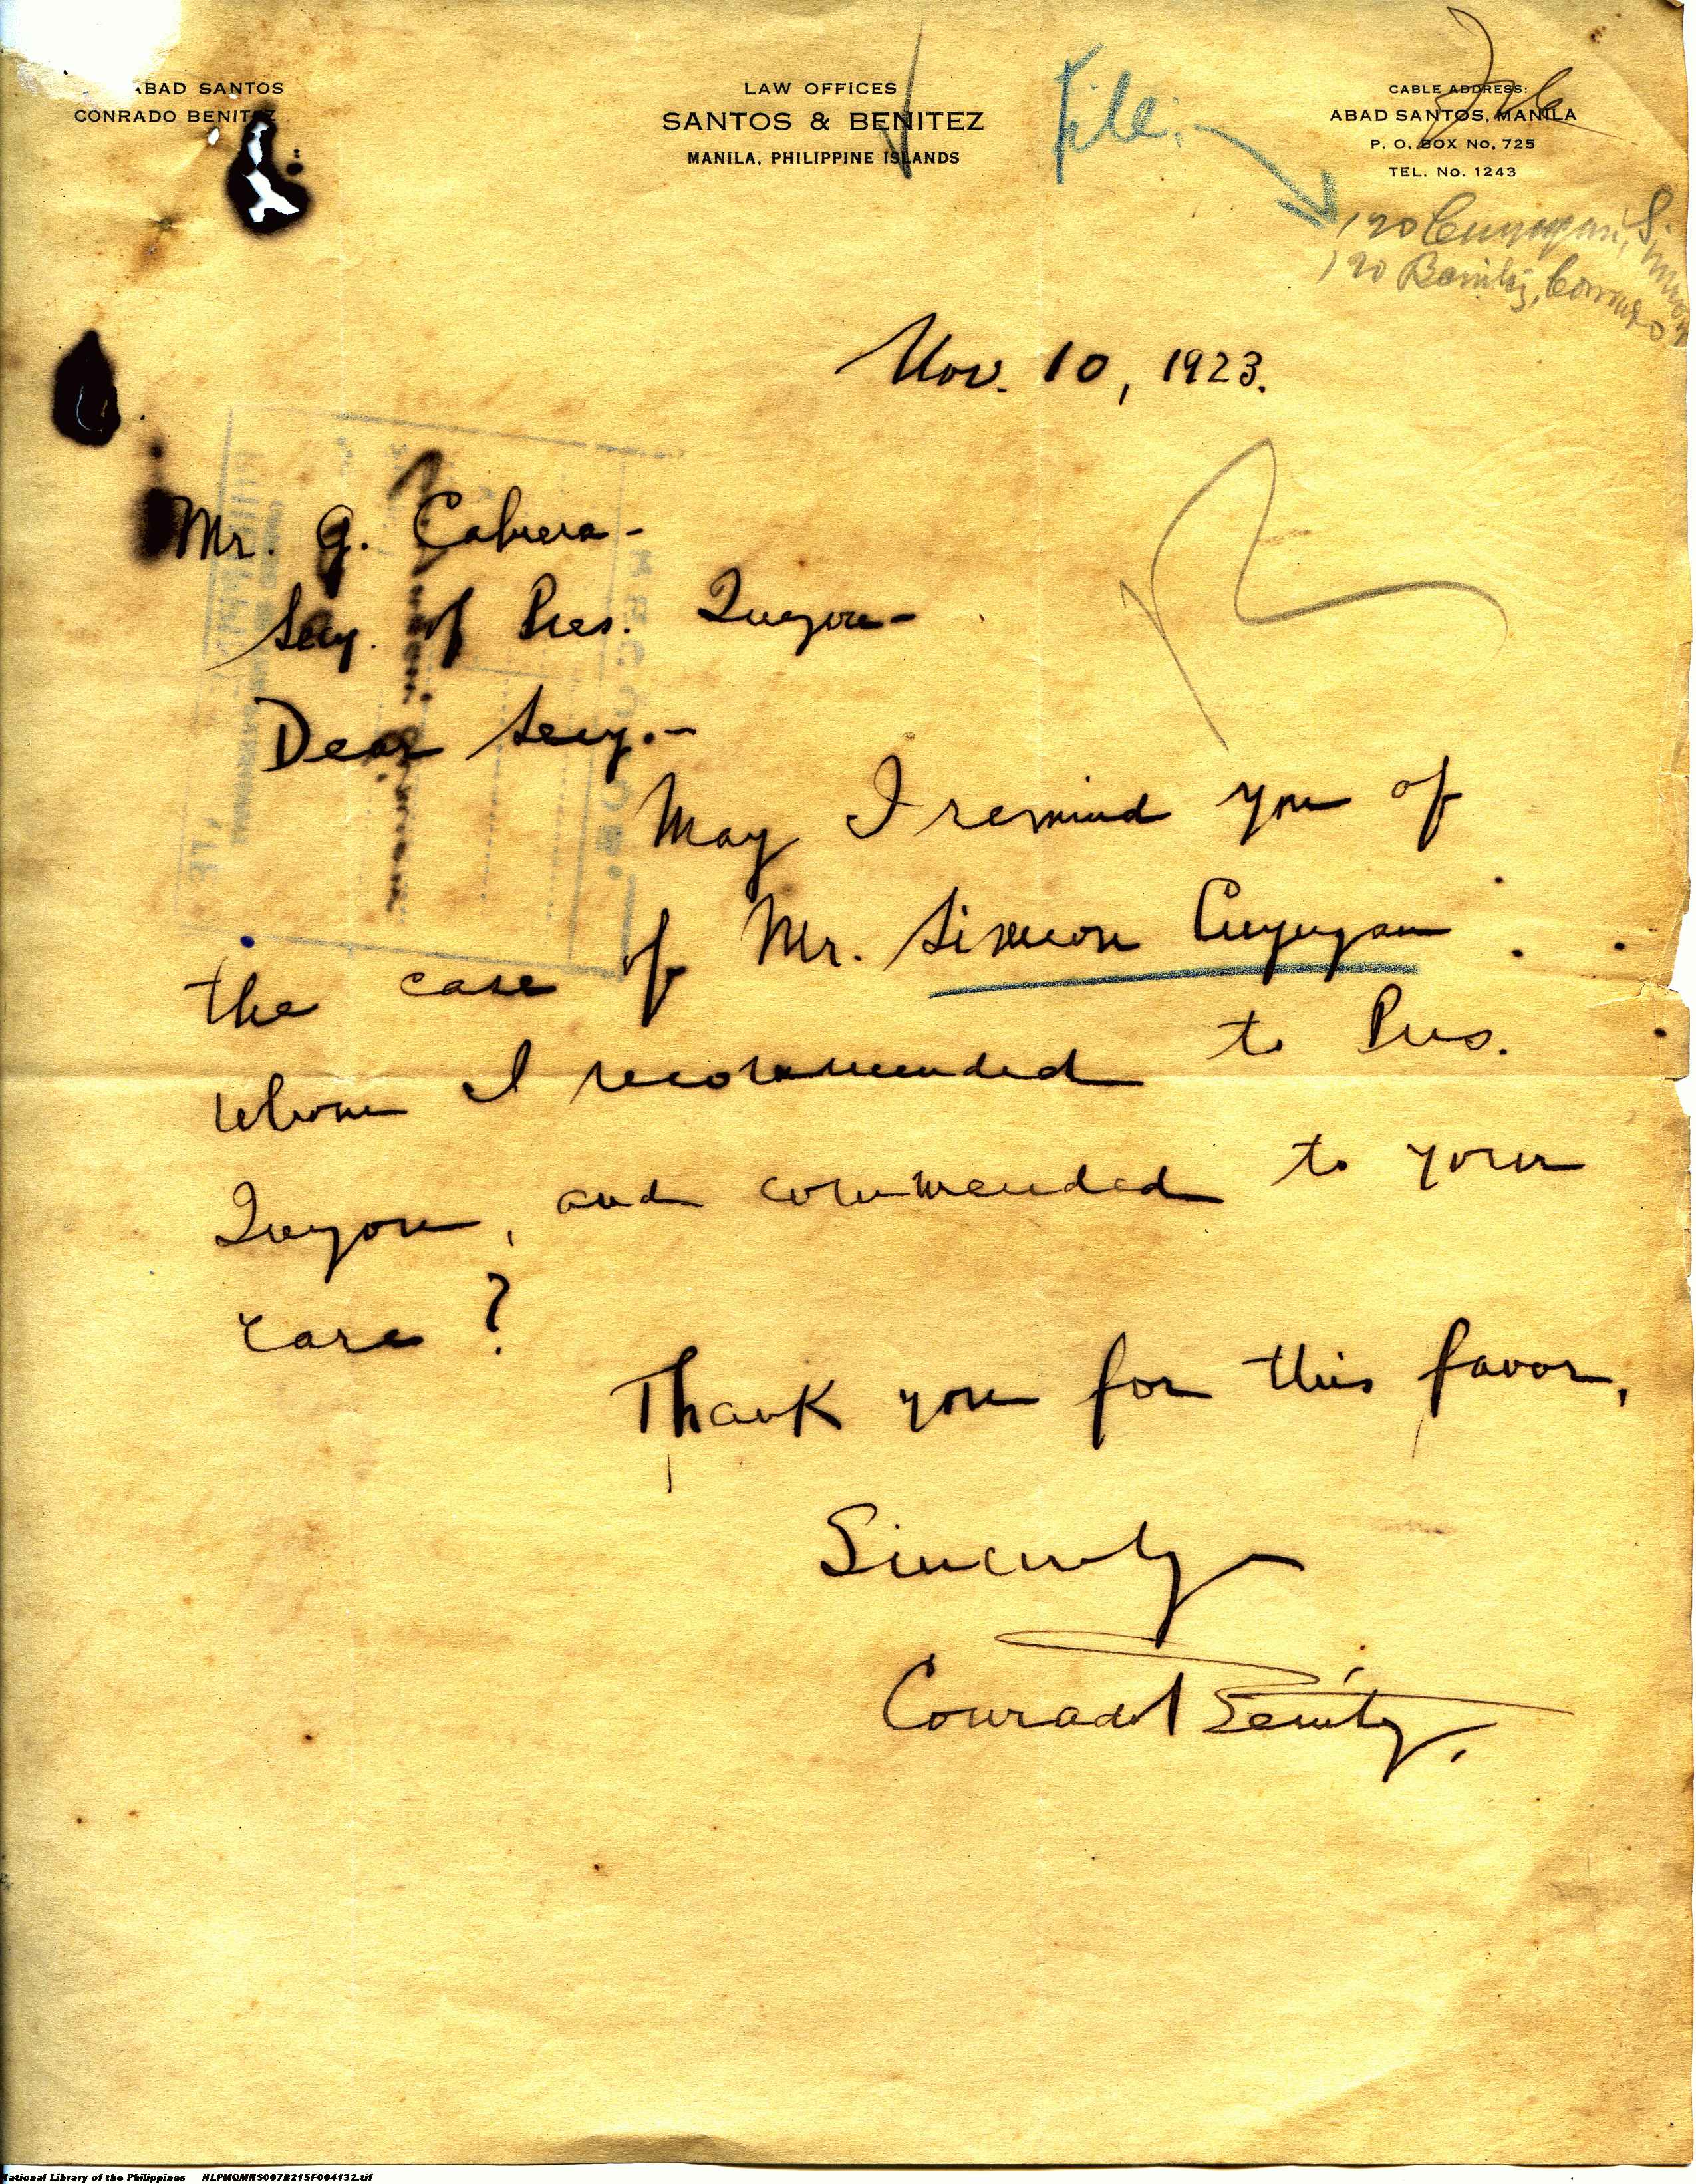 ABAD SANTOS
CONRADO BENITEZ
LAW OFFICES
SANTOS & BENITEZ
MANILA, PHILIPPINE ISLANDS
CABLE ADDRESS:
ABAD SANTOS, MANILA
P. O. BOX No. 725
TEL. No. 1243
File
File
190 Cuyugan, Simeon
190 Benitez, Conrado
Nov. 10, 1923.
Mr. G. Cabrera-
Secy. of Pres. Quezon-
Dear Secy.-
May I remind you of
the case of Mr. Simeon Cuyugan
whom I recommended to Pres.
Quezon, and commended to your
care?
Thank you for this favor,
Sincerely
Conrado Benitez.
National Library of the Philippines NLPMQMNS007B215F004132.tif